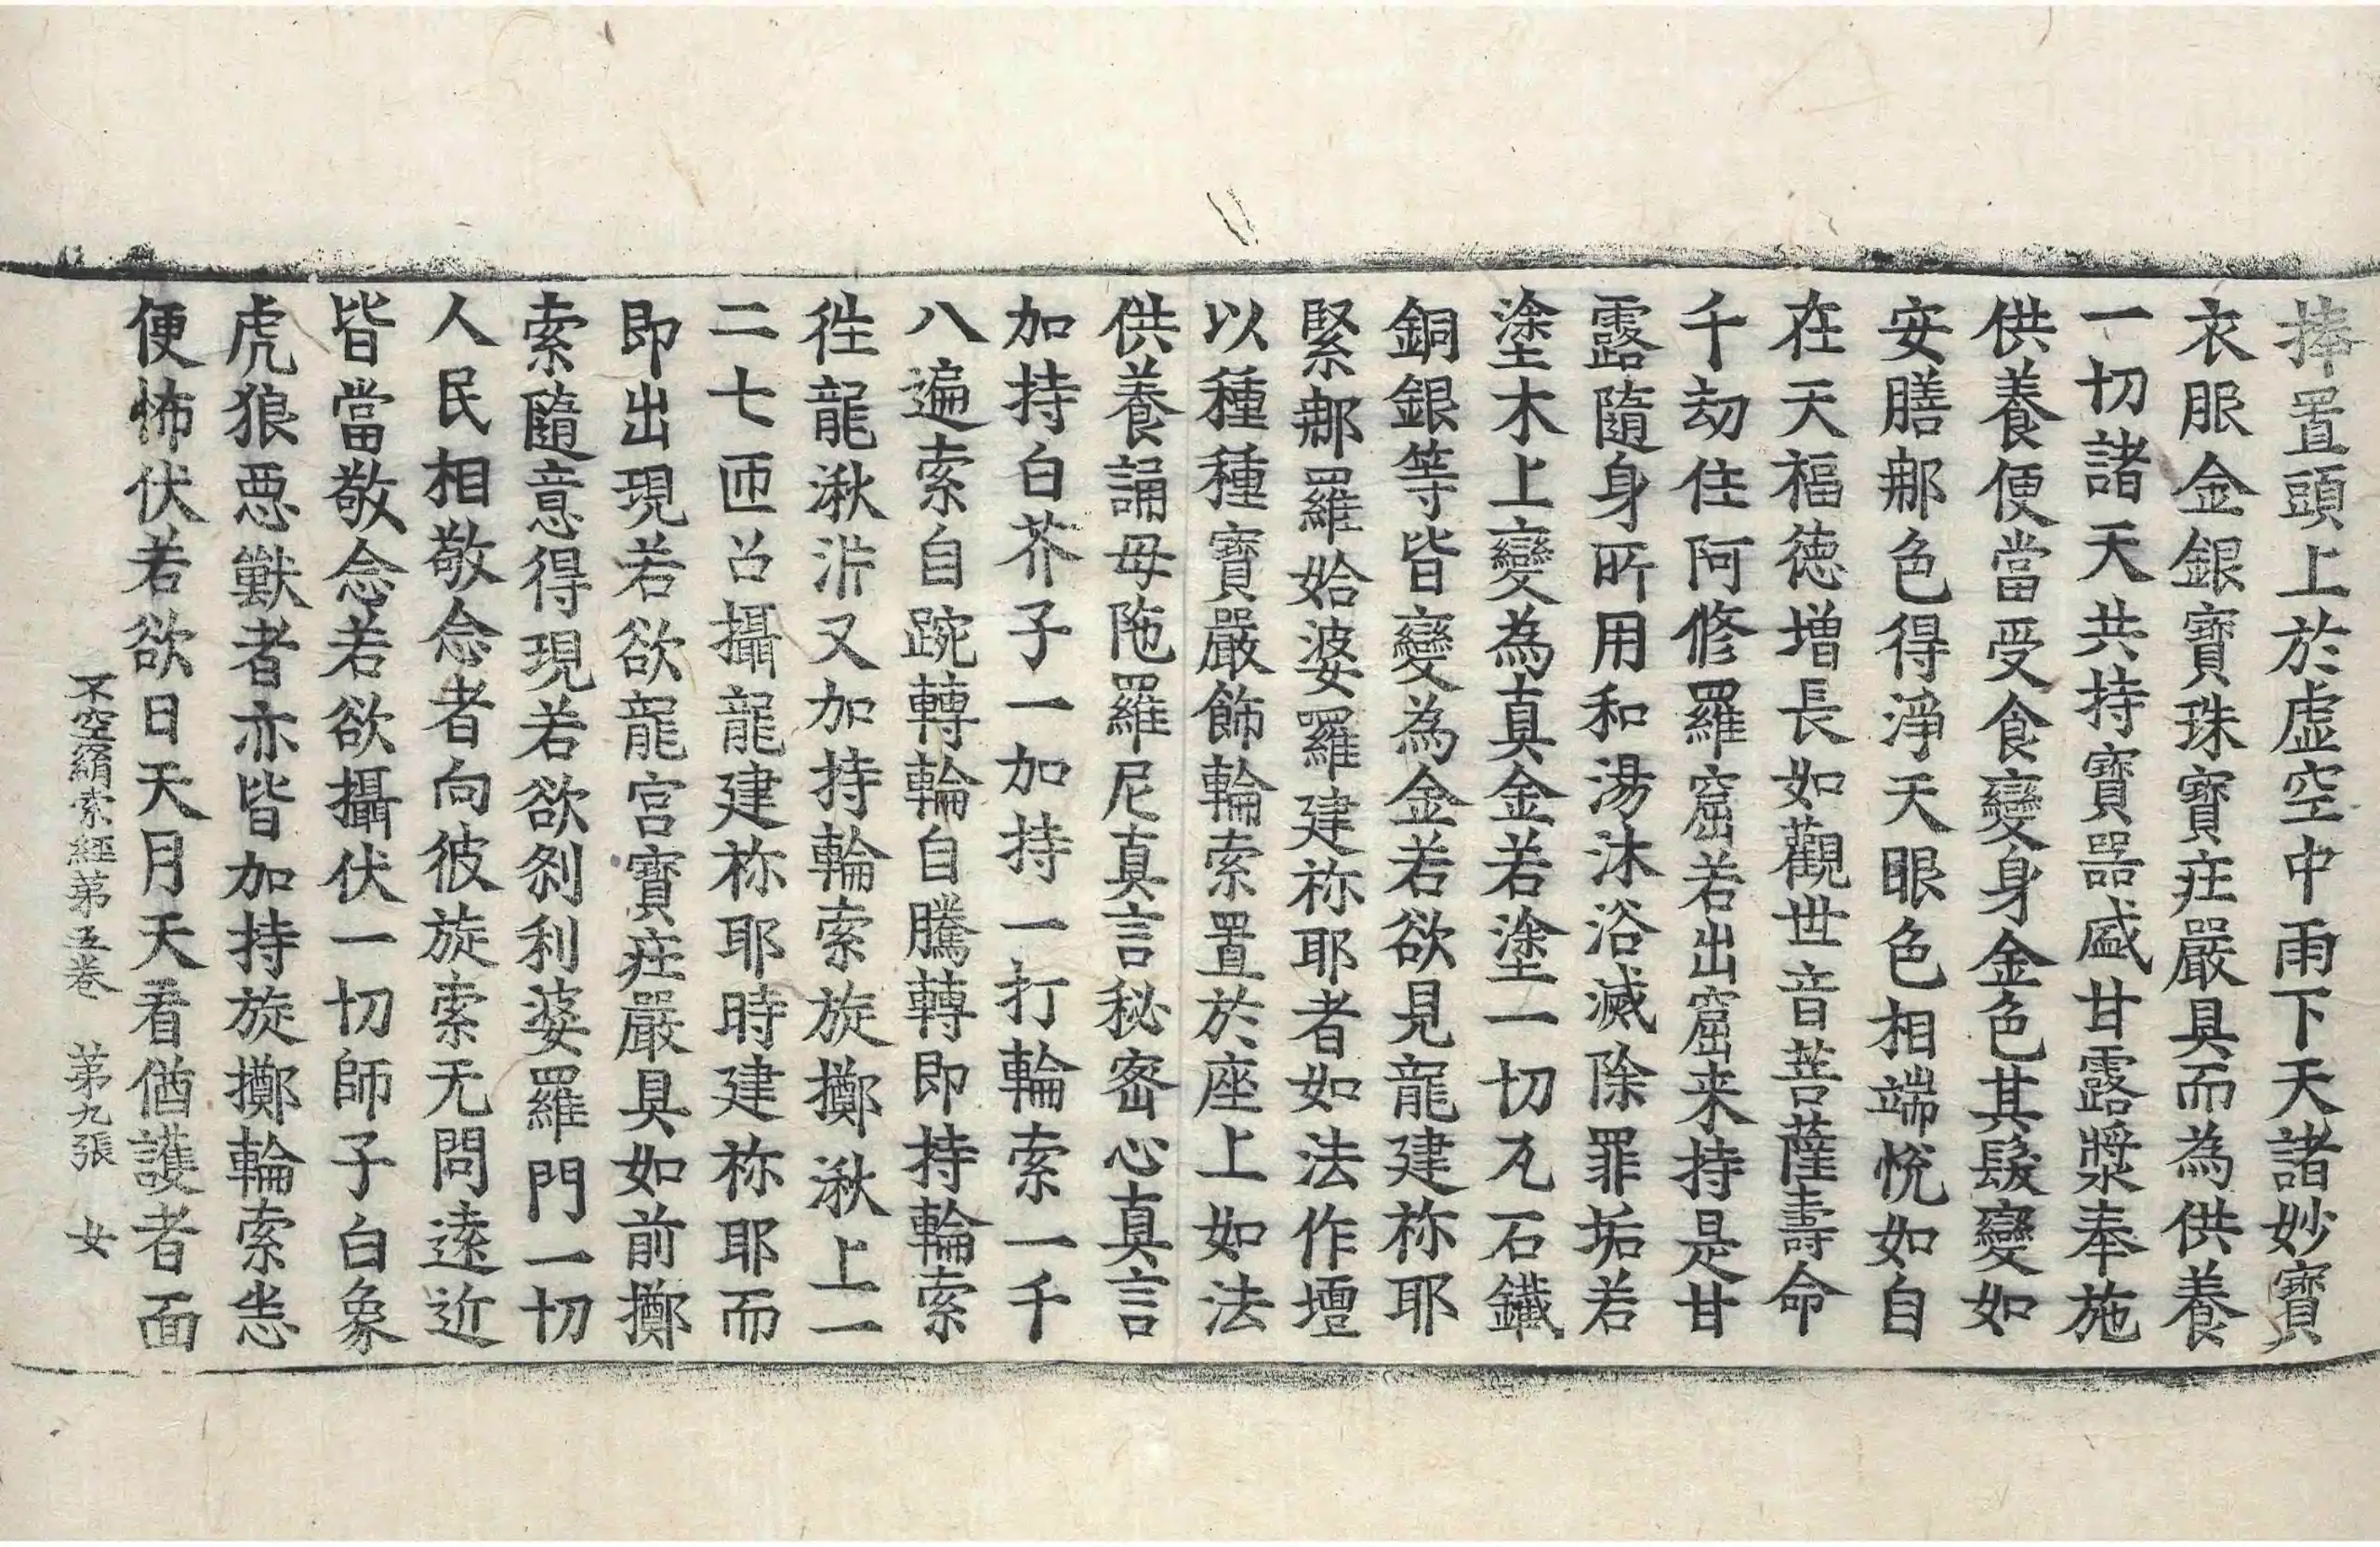 捧置頭上於虛空中雨下天諸妙寶
衣服金銀寶珠寶莊嚴具而為供養
一切諸天共持寶器盛甘露漿奉施
供養便當受食變身金色其髮變如
安膳那色得淨天眼色相端悅如自
在天福德增長如觀世音菩薩壽命
千劫住阿修羅窟若出窟来持是甘
露隨身所用和湯沐浴滅除罪垢若
塗木上變為真金若塗一切瓦石鐵
銅銀等皆變為金若欲見龍建祢耶
緊那羅始婆羅建祢耶者如法作壇
以種種寶嚴飾輪索置於座上如法
供養誦母陁羅尼真言秘密心真言
加持白芥子一加持一打輪索一千
八遍索自踠轉輪自騰轉即持輪索
徃龍湫泲又加持輪索旋擲湫上一
二七匝召攝龍建祢耶時建祢耶而
即出現若欲龍宮寶莊嚴具如前擲
索隨意得現若欲剎利婆羅門一切
人民相敬念者向彼旋索无問遠近
皆當敬念若欲攝伏一切師子白象
虎狼惡獸者亦皆加持旋擲輪索恙
便怖伏若欲日天月天看偤護者面
不空羂索經第五卷　第九張　女